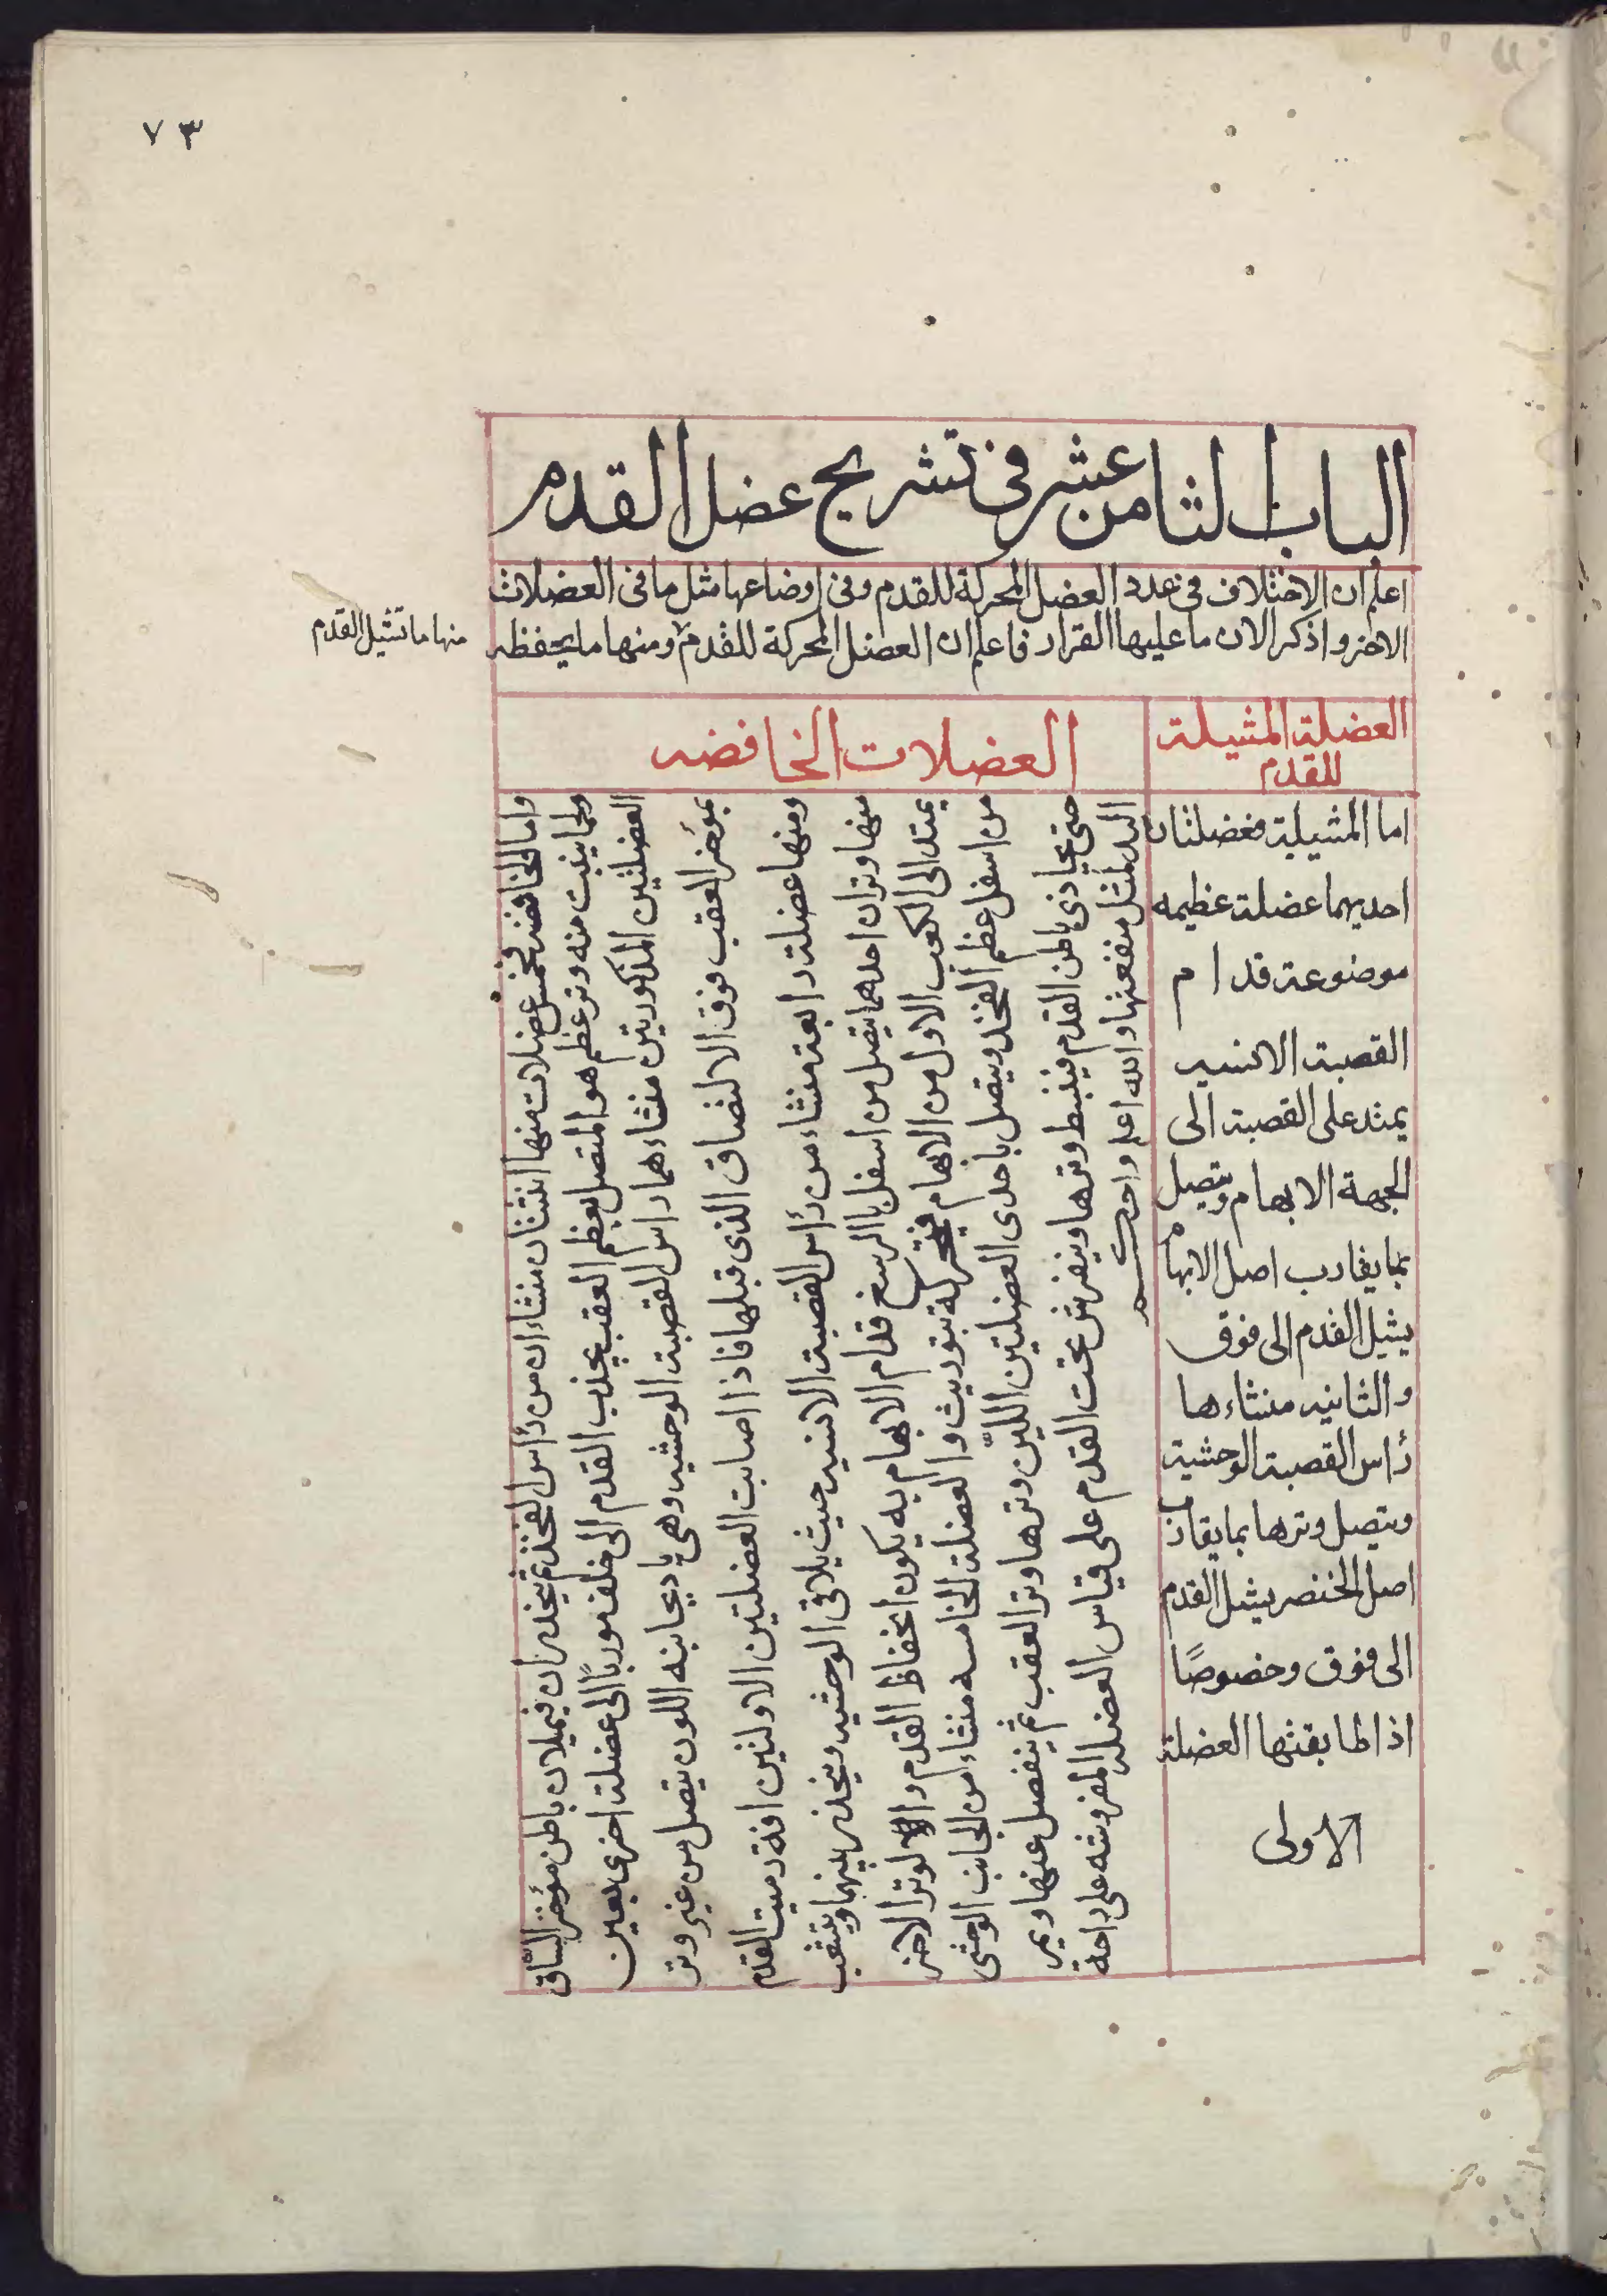 ٧٣
الباب الثامن عشر في تشريح عضل القدم
اعلم ان الاختلاف في عدد العضل المحركة للقدم وفي اوضاعها مثل ما في العضلات
الاخر واذكر الان ما عليها القرار فاعلم ان العضل المحركة للقدم ومنها ما يخفظه
منها ما تشيل القدم
العضلة المشيلة
للقدم
العضلات الخافضه
اما المشيلة فعضلتان
احديهما عضلة عظيمه
موضوعة قدام
القصبة الانسيه
يمتد على القصبة الى
الجهة الابهام وتتصل
بما يقارب اصل الابهام
يشيل القدم الى فوق
والثانيه منشاءها
رأس القصبة الوحشية
ويتصل وترها بما يقارب
اصل الخنصر يشيل القدم
الى فوق وخصوصًا
اذا طابقتها العضلة
الاولى
واما الخافضه فخمس عضلات منها اثنتان منشاءان من رأس الفخذ ثم يخدران فيملان باطن مؤخر الساق
ولما ينبت منه وتر عظم هو المتصل بعظم العقب يجذب القدم الى خلف موربًا الى عضلة اخرى بعين
العضلتين المذكورتين منشاءهما راس القصبة الوحشيه وهى يا ديجانبه اللون يتصل من غير وتر
بمؤخر العقب فوق الالتضاق الذى قبلها فاذا اصابت العضلتين الاولتين افة رميت القدم
ومنها عضلة رابعة منشاء من رأس القصبة الانسيه حيث يلاقى الوحشيه ويخدر بينهما ويتشعب
منها وتران احدهما يتصل من اسفل بالرسغ قدام الابهام به يكون انخفاظ القدم والوتر الاخر
يمتد الى الكعب الاول من الابهام فيحركة بتوريث والعضلة الخامسه منشاء من الجانب الوحشى
من اسفل عظم الفخذ ويتصل باحدى العضلتين اللين وترها وتر العقب ثم ينفصل عنها ويمر
حتى يحاذى باطن القدم فينبط وترها وينفرش تحت القدم على قياس العضلة المفروشه على راحة
اليد لمثل منفعتها والله اعلم واحكم